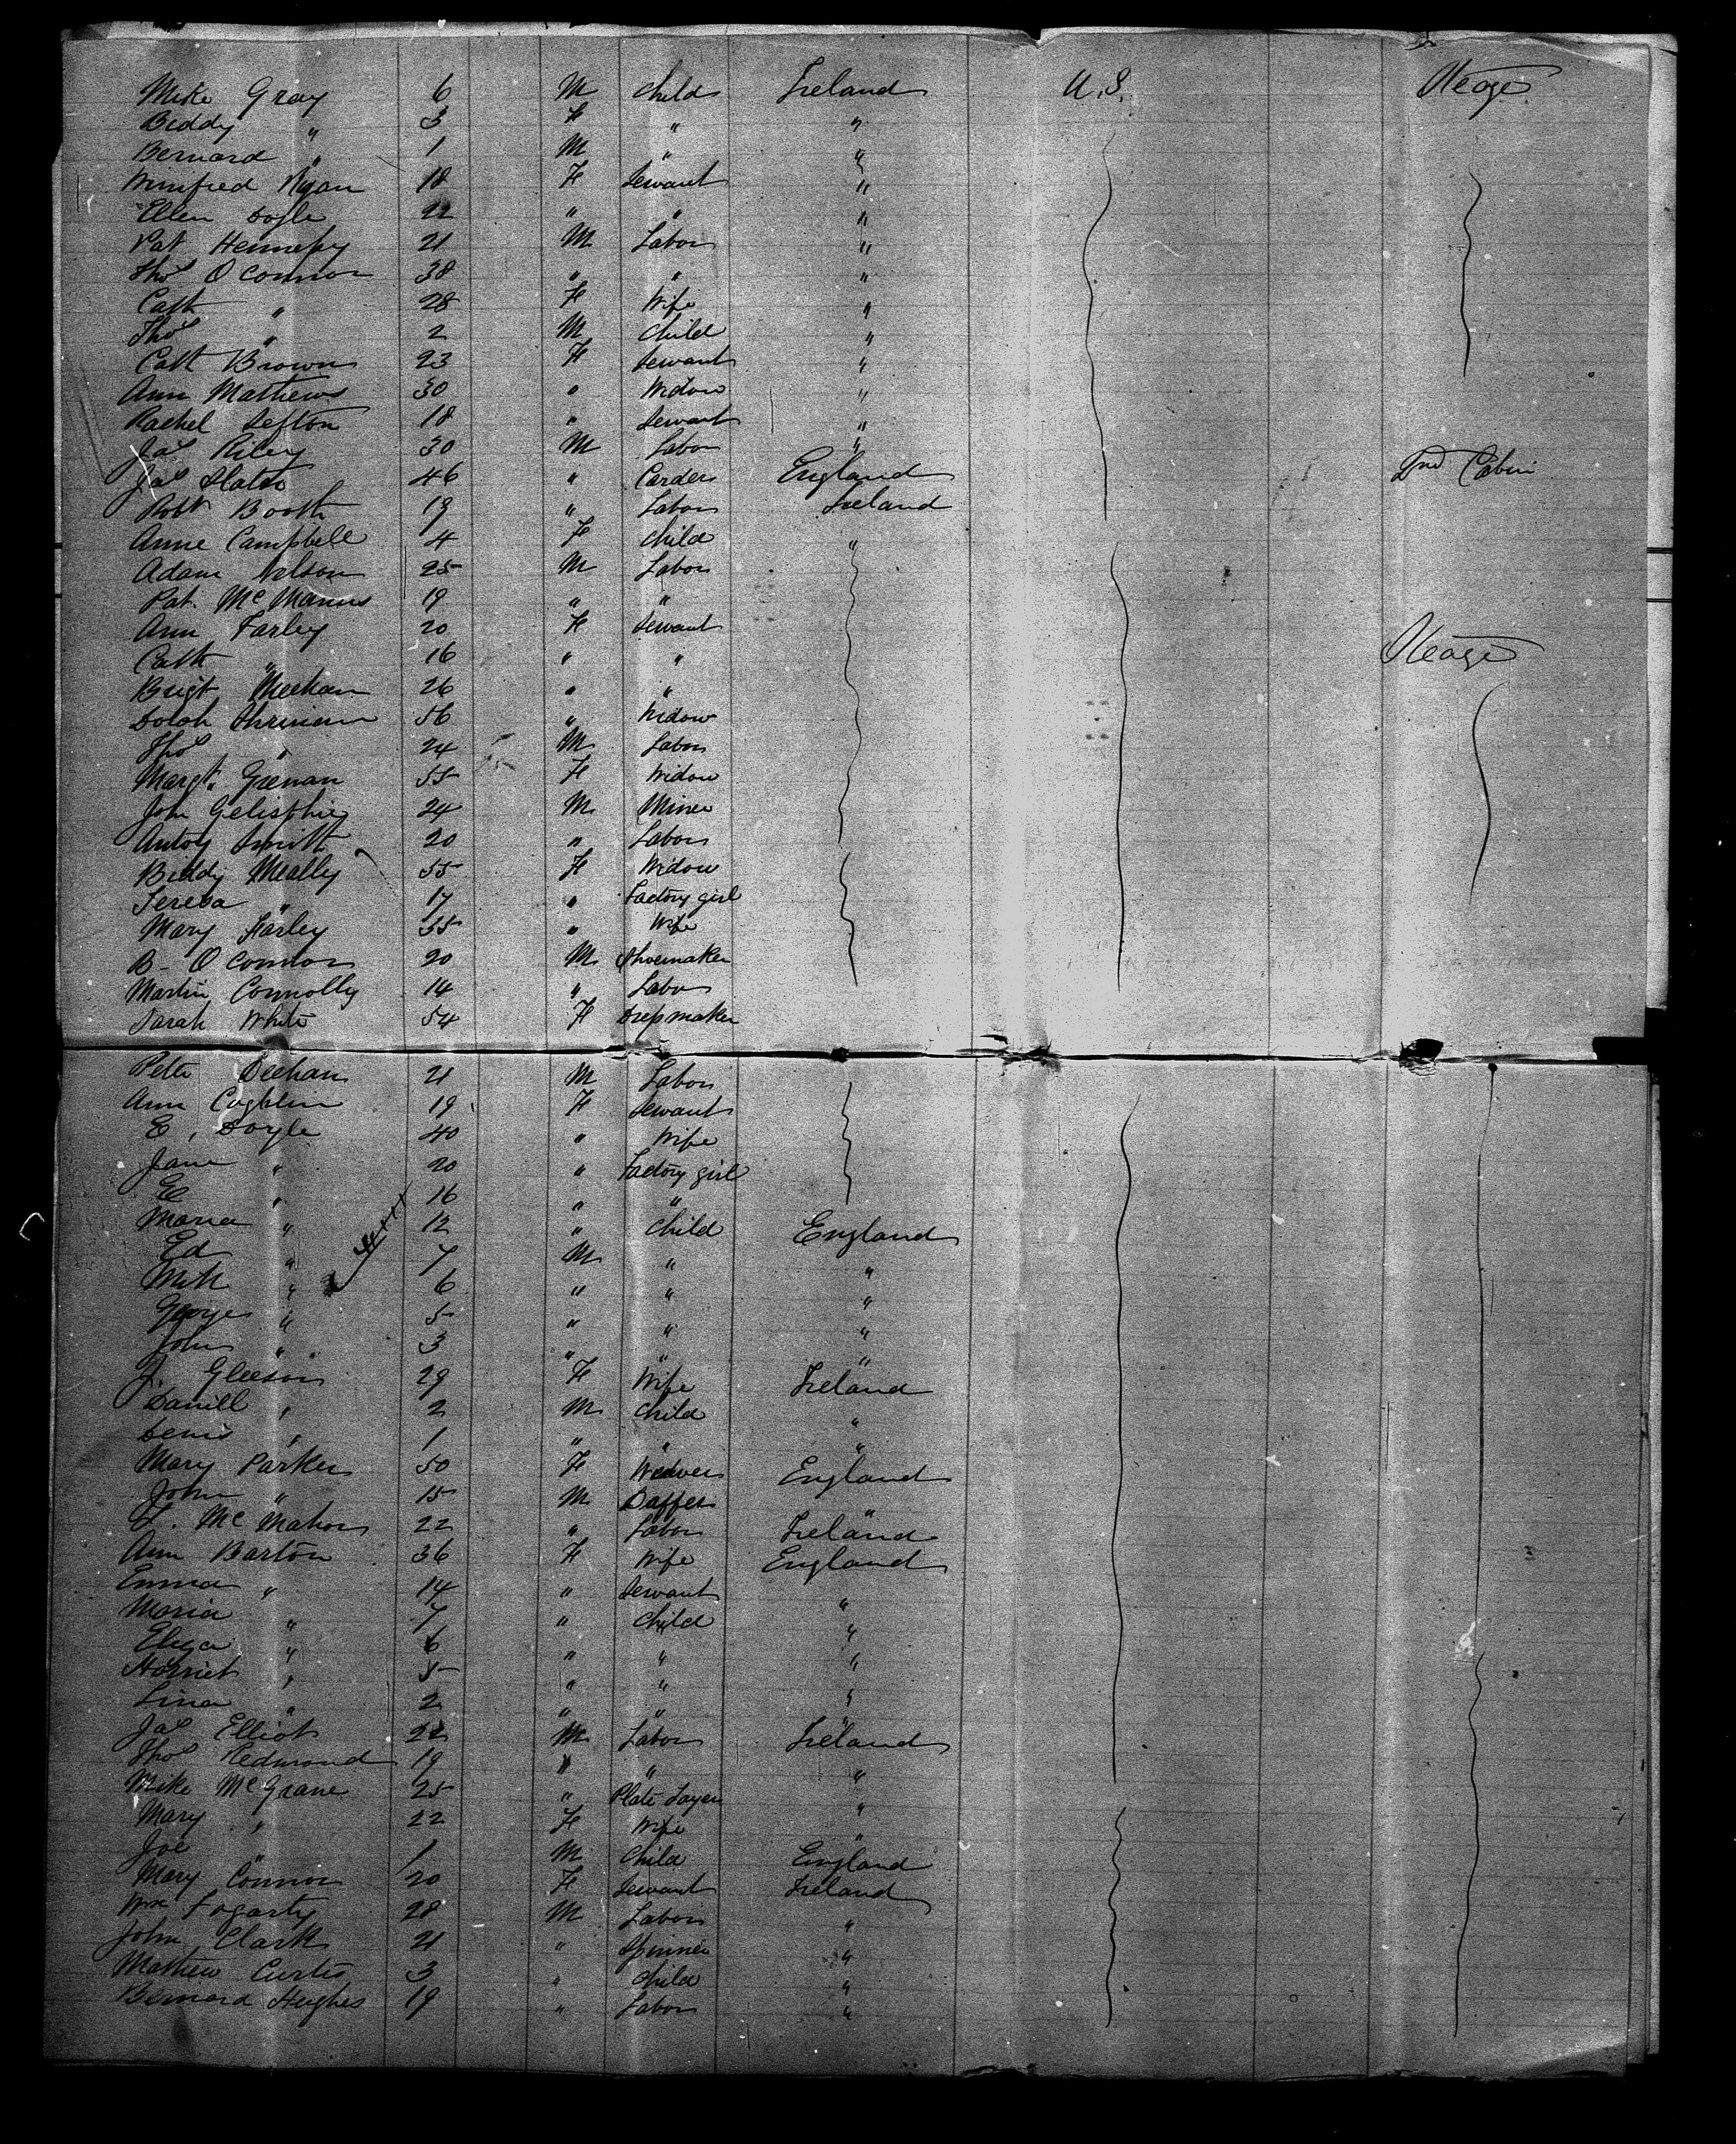 Mike Gray 6 M Child Ireland U.S. Steage
Biddy " 3 F " "
Bernard " 1 M " "
Winifred Ryan 18 F Servant "
Ellen Doyle 22 " " "
Pat Hennessy 21 M Labor "
Thos O Connor 38 " " "
Cath " 28 F Wife "
Thos " 2 M Child "
Cath Brown 23 F Servant "
Ann Mathews 30 " Widow "
Rachel Sefton 18 " Servant "
Jas Riley 30 M Labor "
Jas Slater 46 " Carder England 2nd Cabin
Robt Booth 19 " Labor Ireland
Anne Campbell 4 F Child "
Adam Nelson 25 M Labor
Pat. McManus 19 " "
Ann Farley 20 F Servant Steage
Cath " 16 " "
Brigt Meehan 26 " "
56 " Widow
Thos " 24 M Labor
Margt. Grenan 55 F Widow
John 24 M Miner
Antoy Smith 20 " Labor
Biddy Meally 55 F Widow
Teresa " 17 " Factory girl
Mary Farley 35 " Wife
B- O Connor 20 M Shoemaker
Martin Connolly 14 " Labor
Sarah White 54 F Dressmaker
Peter Deehan 21 M Labor
Ann Coghlin 19 F Servant
E. Doyle 40 " Wife
Jane " 20 " Factory girl
E " 16 " "
Maria " 12 " Child England
Ed " 7 M " "
Mich " 6 " " "
George " 5 " " "
John " 3 " " "
J. Gleeson 29 F Wife Ireland
Daniell " 2 M Child "
Denis " 1 " " "
Mary Parker 50 F Weaver England
John " 15 M Doffer "
McMahon 22 " Labor Ireland
Ann Barton 36 F Wife England
Emma " 14 " Servant "
Maria " 7 " Child "
Eliza " 6 " " "
Harriet " 5 " " "
Lina " 2 " " "
Jas Elliot 22 M Labor Ireland
Thos Redmond 19 " " "
Mike McGrane 25 " Plate Layer "
Mary " 22 F Wife "
Joe " 1 M Child England
Mary Connor 20 F Servant Ireland
Wm Fogarty 28 M Labor "
John Clark 21 " Spinner "
Mathew Curtis 3 " Child "
Bernard Hughes 19 " Labor "